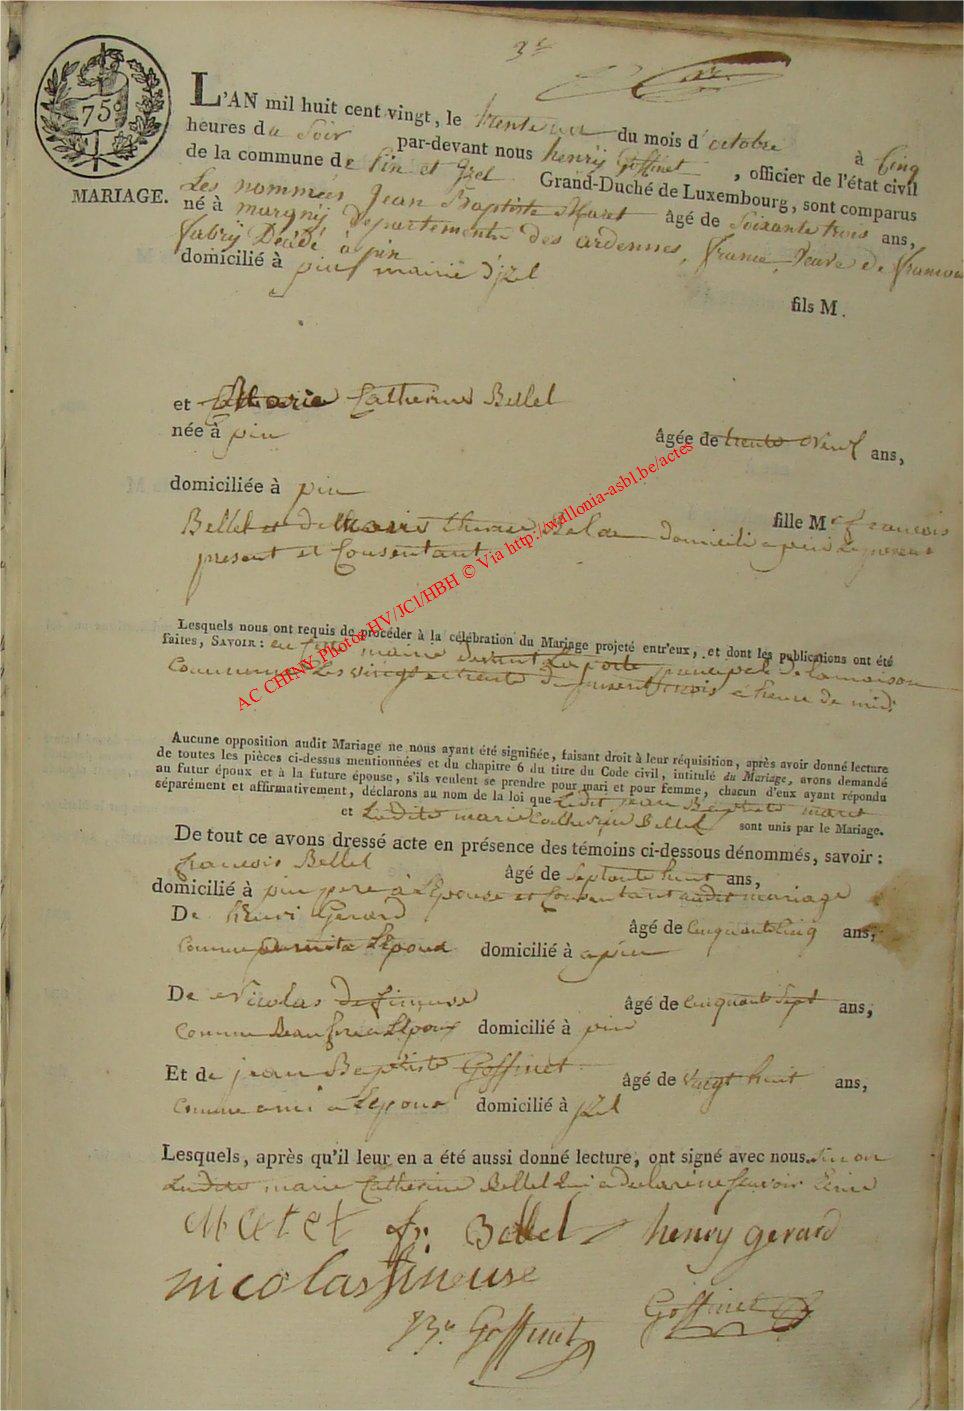 3e
75c
MARIAGE.
L'AN mil huit cent vingt, le trente un du mois d'octobre à Cinq
heures du Soir par-devant nous henrij Goffinet, officier de l'état civil
de la commune de pin et Izel Grand-Duché de Luxembourg, sont comparus
Les nommées Jean Baptiste Maret âgé de Soixante trois ans,
né à margnij Departement des ardennes, france, veave de francois
fabrij Décédé à pin
domicilié à pin mairie d'jzel
fils M.
et Marie Catherine Bellel
née à pin âgée de trente Neuf ans,
domiciliée à pin
fille Me francois
Bellel et de Marie therese domicili a pin
present et Consentant
Lesquels nous ont requis de procéder à la célébration du Mariage projeté entr'eux, et dont les publications ont été
faites, SAVOIR: mairie devant La porte principale de la maison
Commune Les vingt et trente du present mois a heure de midi
AC CHINY Photos HV/JCl/HBH © Via http://wallonia-asbl.be/actes
Aucune opposition audit Mariage ne nous ayant été signifiée, faisant droit à leur réquisition, après avoir donné lecture
de toutes les pièces ci-dessus mentionnées et du chapitre 6 du titre du Code civil, intitulé du Mariage, avons demandé
au futur époux et à la future épouse, s'ils veulent se prendre pour mari et pour femme, chacun d'eux ayant répondu
séparément et affirmativement, déclarons au nom de la loi que Ledit jean Baptiste maret
et Ladite marie Catherine Bellel sont unis par le Mariage.
De tout ce avons dressé acte en présence des témoins ci-dessous dénommés, savoir:
francois Bellel âgé de septante huit ans,
domicilié à pin pere à L'Epouse et Consentant audit mariage
De henri Gerard âgé de Cinquante Cinq ans,
Comme L'Epoux domicilié à a pin
De Nicolas de fineuse âgé de Cinquante Sept ans,
Comme Beau frere a L'Epoux domicilié à pin
Et de jean Baptiste Goffinet âgé de vingt huit ans,
Comme ami a L'Epoux domicilié à jzel
Lesquels, après qu'il leur en a été aussi donné lecture, ont signé avec nous. Sinon
Ladite marie Catherine Bellel qui a declaré ne savoir
Maret fr. Bellel henry gerard
nicolas fineuse
JBte Goffinet Goffinet